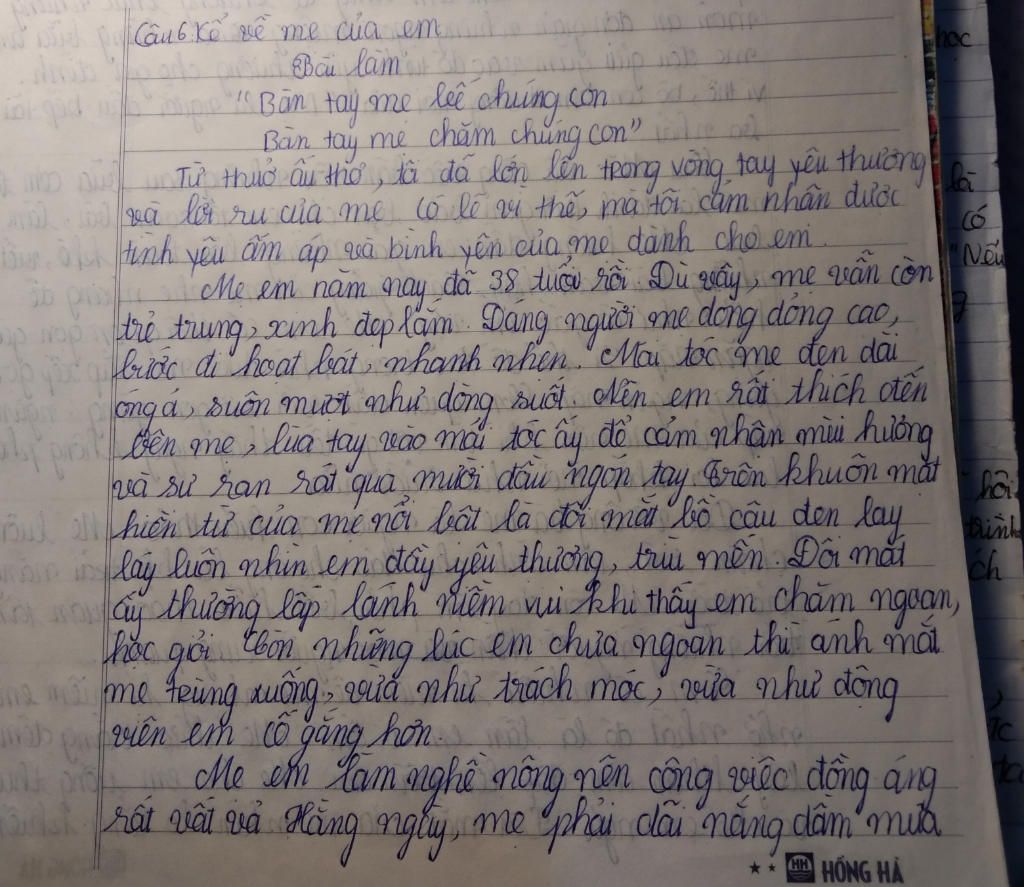 Câu 6. Kể về mẹ của em
Bài làm
"Bàn tay mẹ bế chúng con
Bàn tay mẹ chăm chúng con"
Từ thuở ấu thơ, tôi đã lớn lên trong vòng tay yêu thương
và lời ru của mẹ Có lẽ vì thế, mà tôi cảm nhận được
tình yêu ấm áp và bình yên của mẹ dành cho em.
Mẹ em năm nay đã 38 tuổi rồi. Dù vậy, mẹ vẫn còn
trẻ trung, xinh đẹp lắm. Dáng người mẹ dong dỏng cao,
bước đi hoạt bát, nhanh nhẹn. Mái tóc mẹ đen dài
óng ả, suôn mượt như dòng suối. Nên em rất thích đến
bên mẹ, lùa tay vào mái tóc ấy để cảm nhận mùi hương
và sự ran rát qua mười đầu ngón tay Trên khuôn mặt
hiền từ của mẹ nổi bật là đôi mắt bồ câu đen lay
láy luôn nhìn em đầy yêu thương, trìu mến. Đôi mắt
ấy thường lấp lánh niềm vui khi thấy em chăm ngoan,
học giỏi Còn những lúc em chưa ngoan thì ánh mắt
mẹ trùng xuống, vừa như trách móc, vừa như động
viên em cố gắng hơn.
Mẹ em làm nghề nông nên công việc đồng áng
rất vất vả Hằng ngày, mẹ phải dãi nắng dầm mưa
HỒNG HÀ
học
là
có
"Nếu